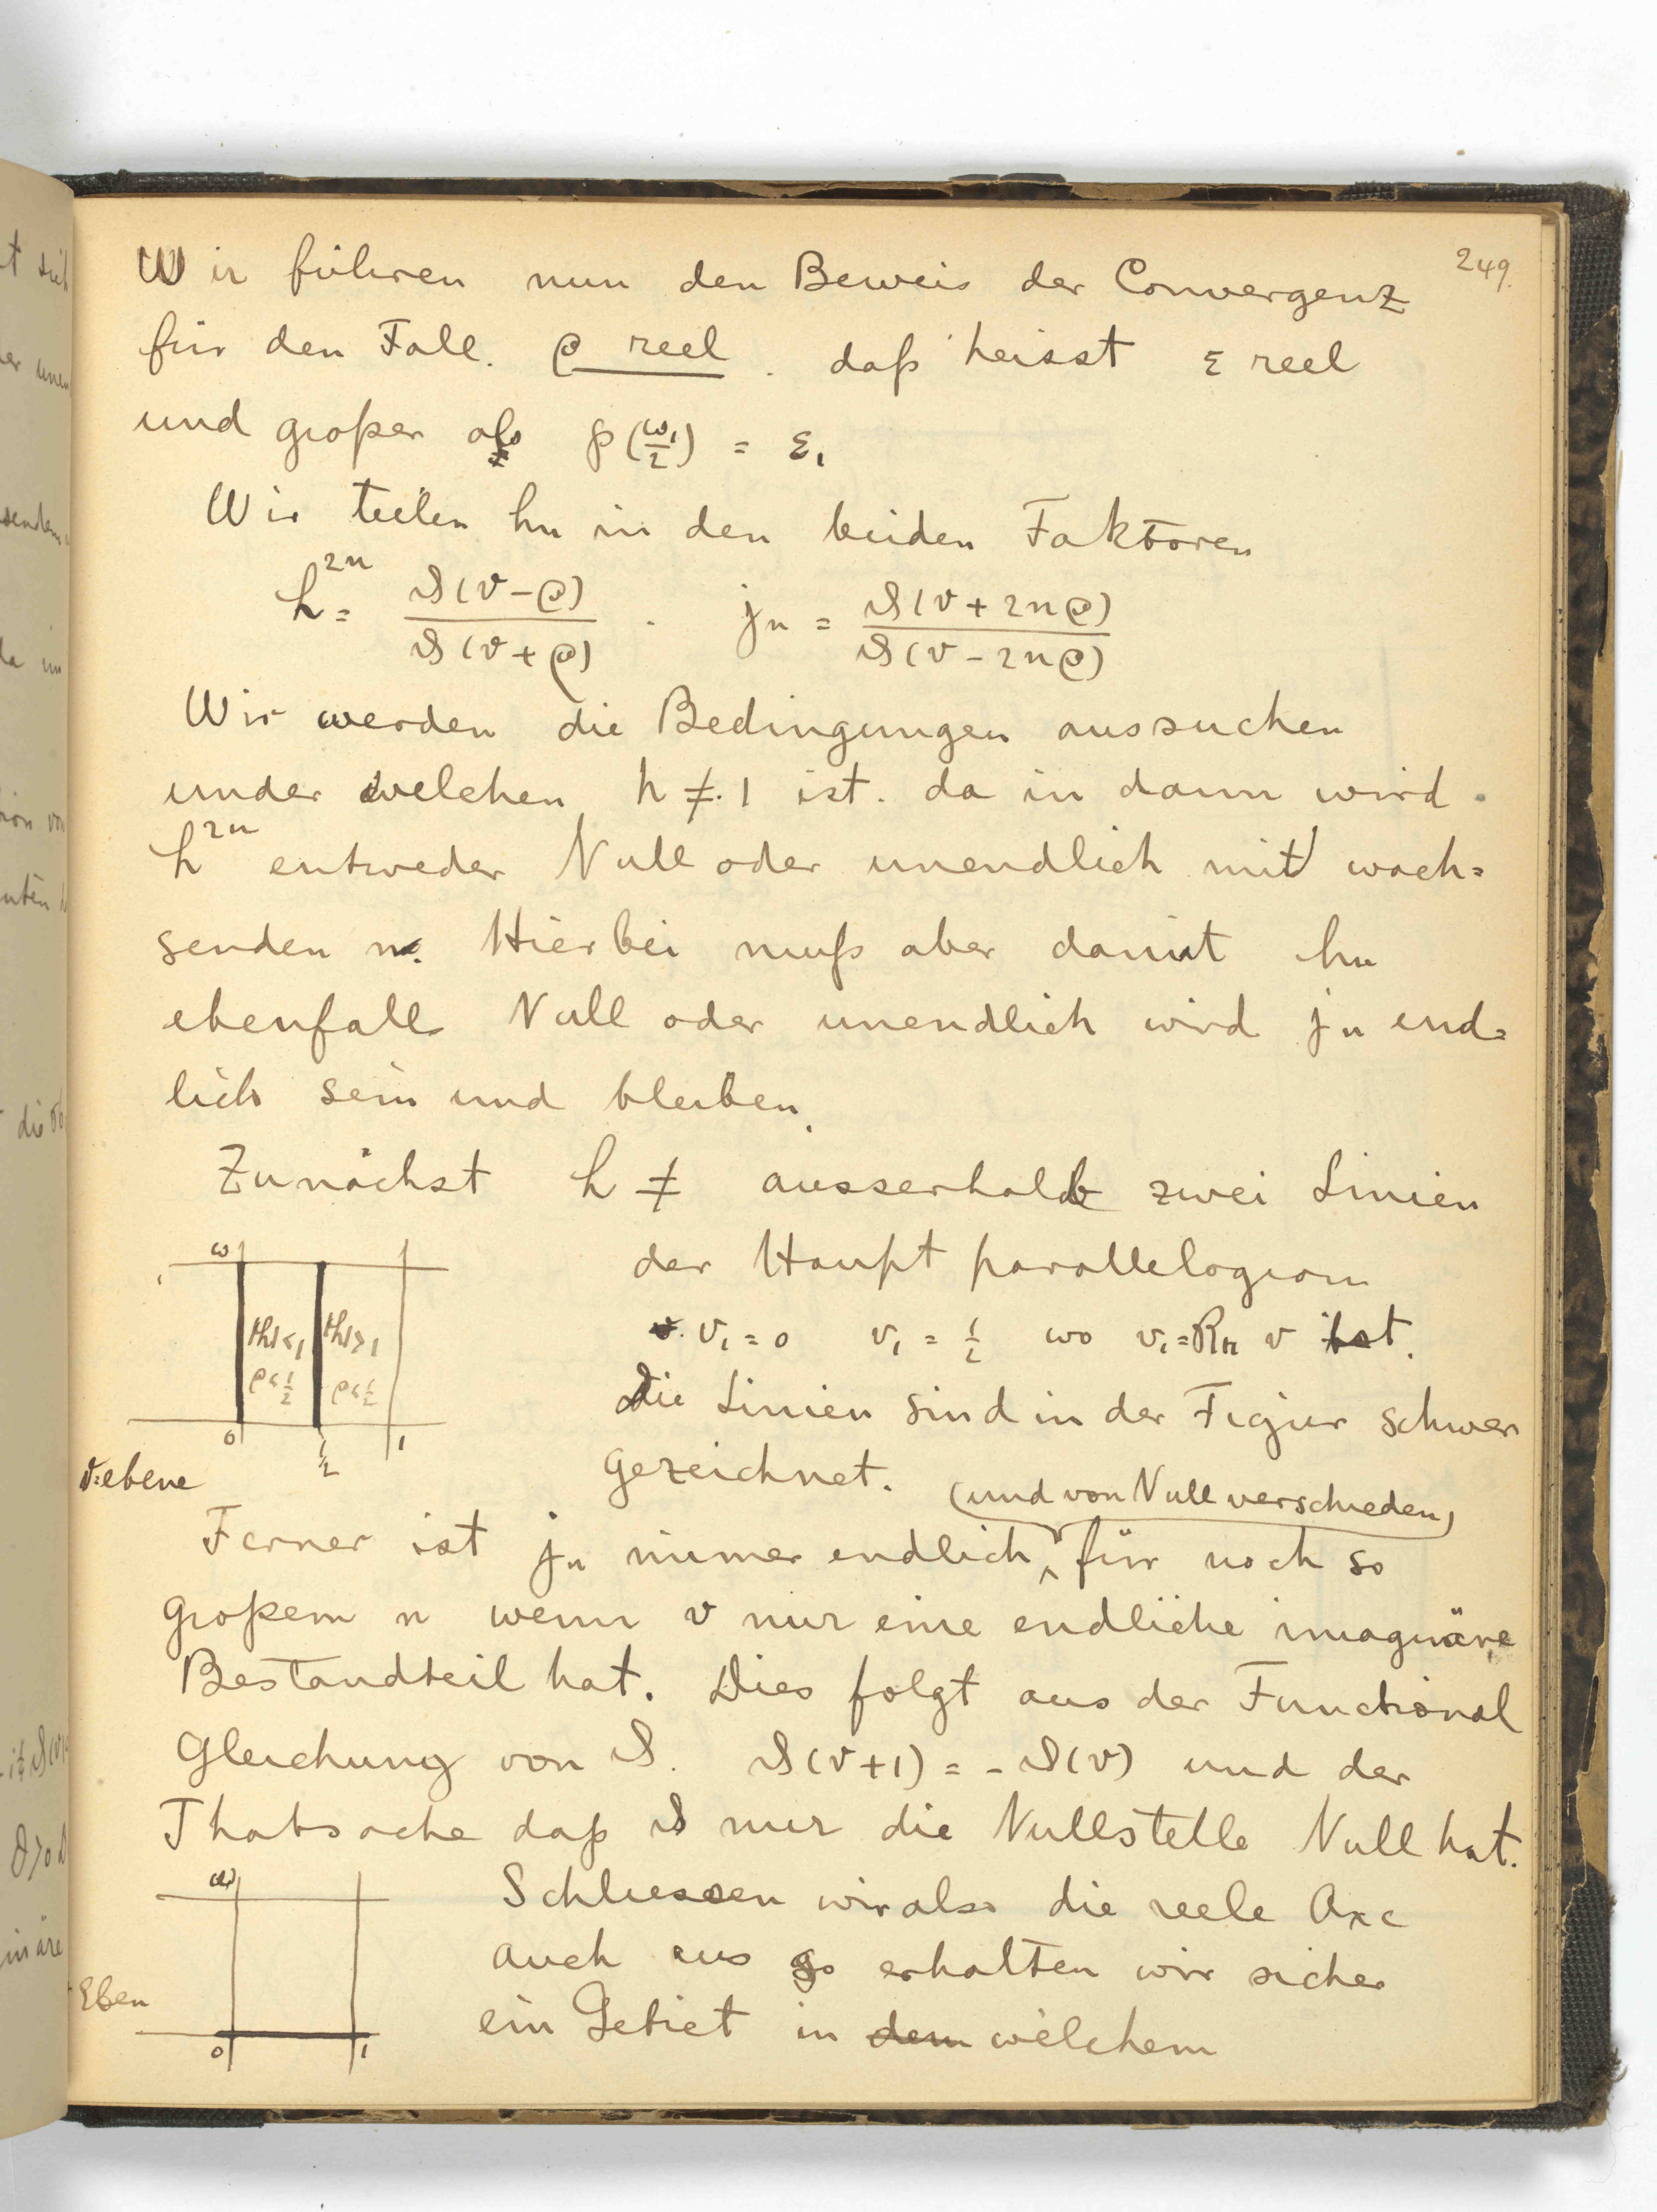 249.
Wir führen nun den Beweis der Convergenz
für den Fall. ρ reel. daß heisst ε reel
und großer als ℘(ω₁/2) = ε₁
Wir teilen hn in den beiden Faktoren
h²ⁿ = ϑ(v-ρ)/ϑ(v+ρ) · jn = ϑ(v+2nρ)/ϑ(v-2nρ)
Wir werden die Bedingungen aussuchen
under welchen h ≠ 1 ist. da in dann wird
h²ⁿ entweder Null oder unendlich mit wach=
senden n. Hierbei muß aber damit hn
ebenfalls Null oder unendlich wird jn end=
lich sein und bleiben.
Zunächst h ≠ ausserhalb zwei Linien
der Haupt parallelogram
v₁ = 0 v₁ = 1/2 wo v₁ = R v ist.
Die Linien sind in der Figur schwer
gezeichnet.
ω
|h|<1 |h|>1
ρ<1/2 ρ<1/2
0 1/2 1
v=ebene
(und von Null verschieden)
Ferner ist jn immer endlich, für noch so
großem n wenn v nur eine endliche imaginäre
Bestandteil hat. Dies folgt aus der Functional
Gleichung von ϑ. ϑ(v+1) = -ϑ(v) und der
Thatsache daß ϑ nur die Nullstelle Null hat.
Schliessen wir also die reele Axe
auch aus so erhalten wir sicher
ein Gebiet in dem welchem
ω
Eben
0 1